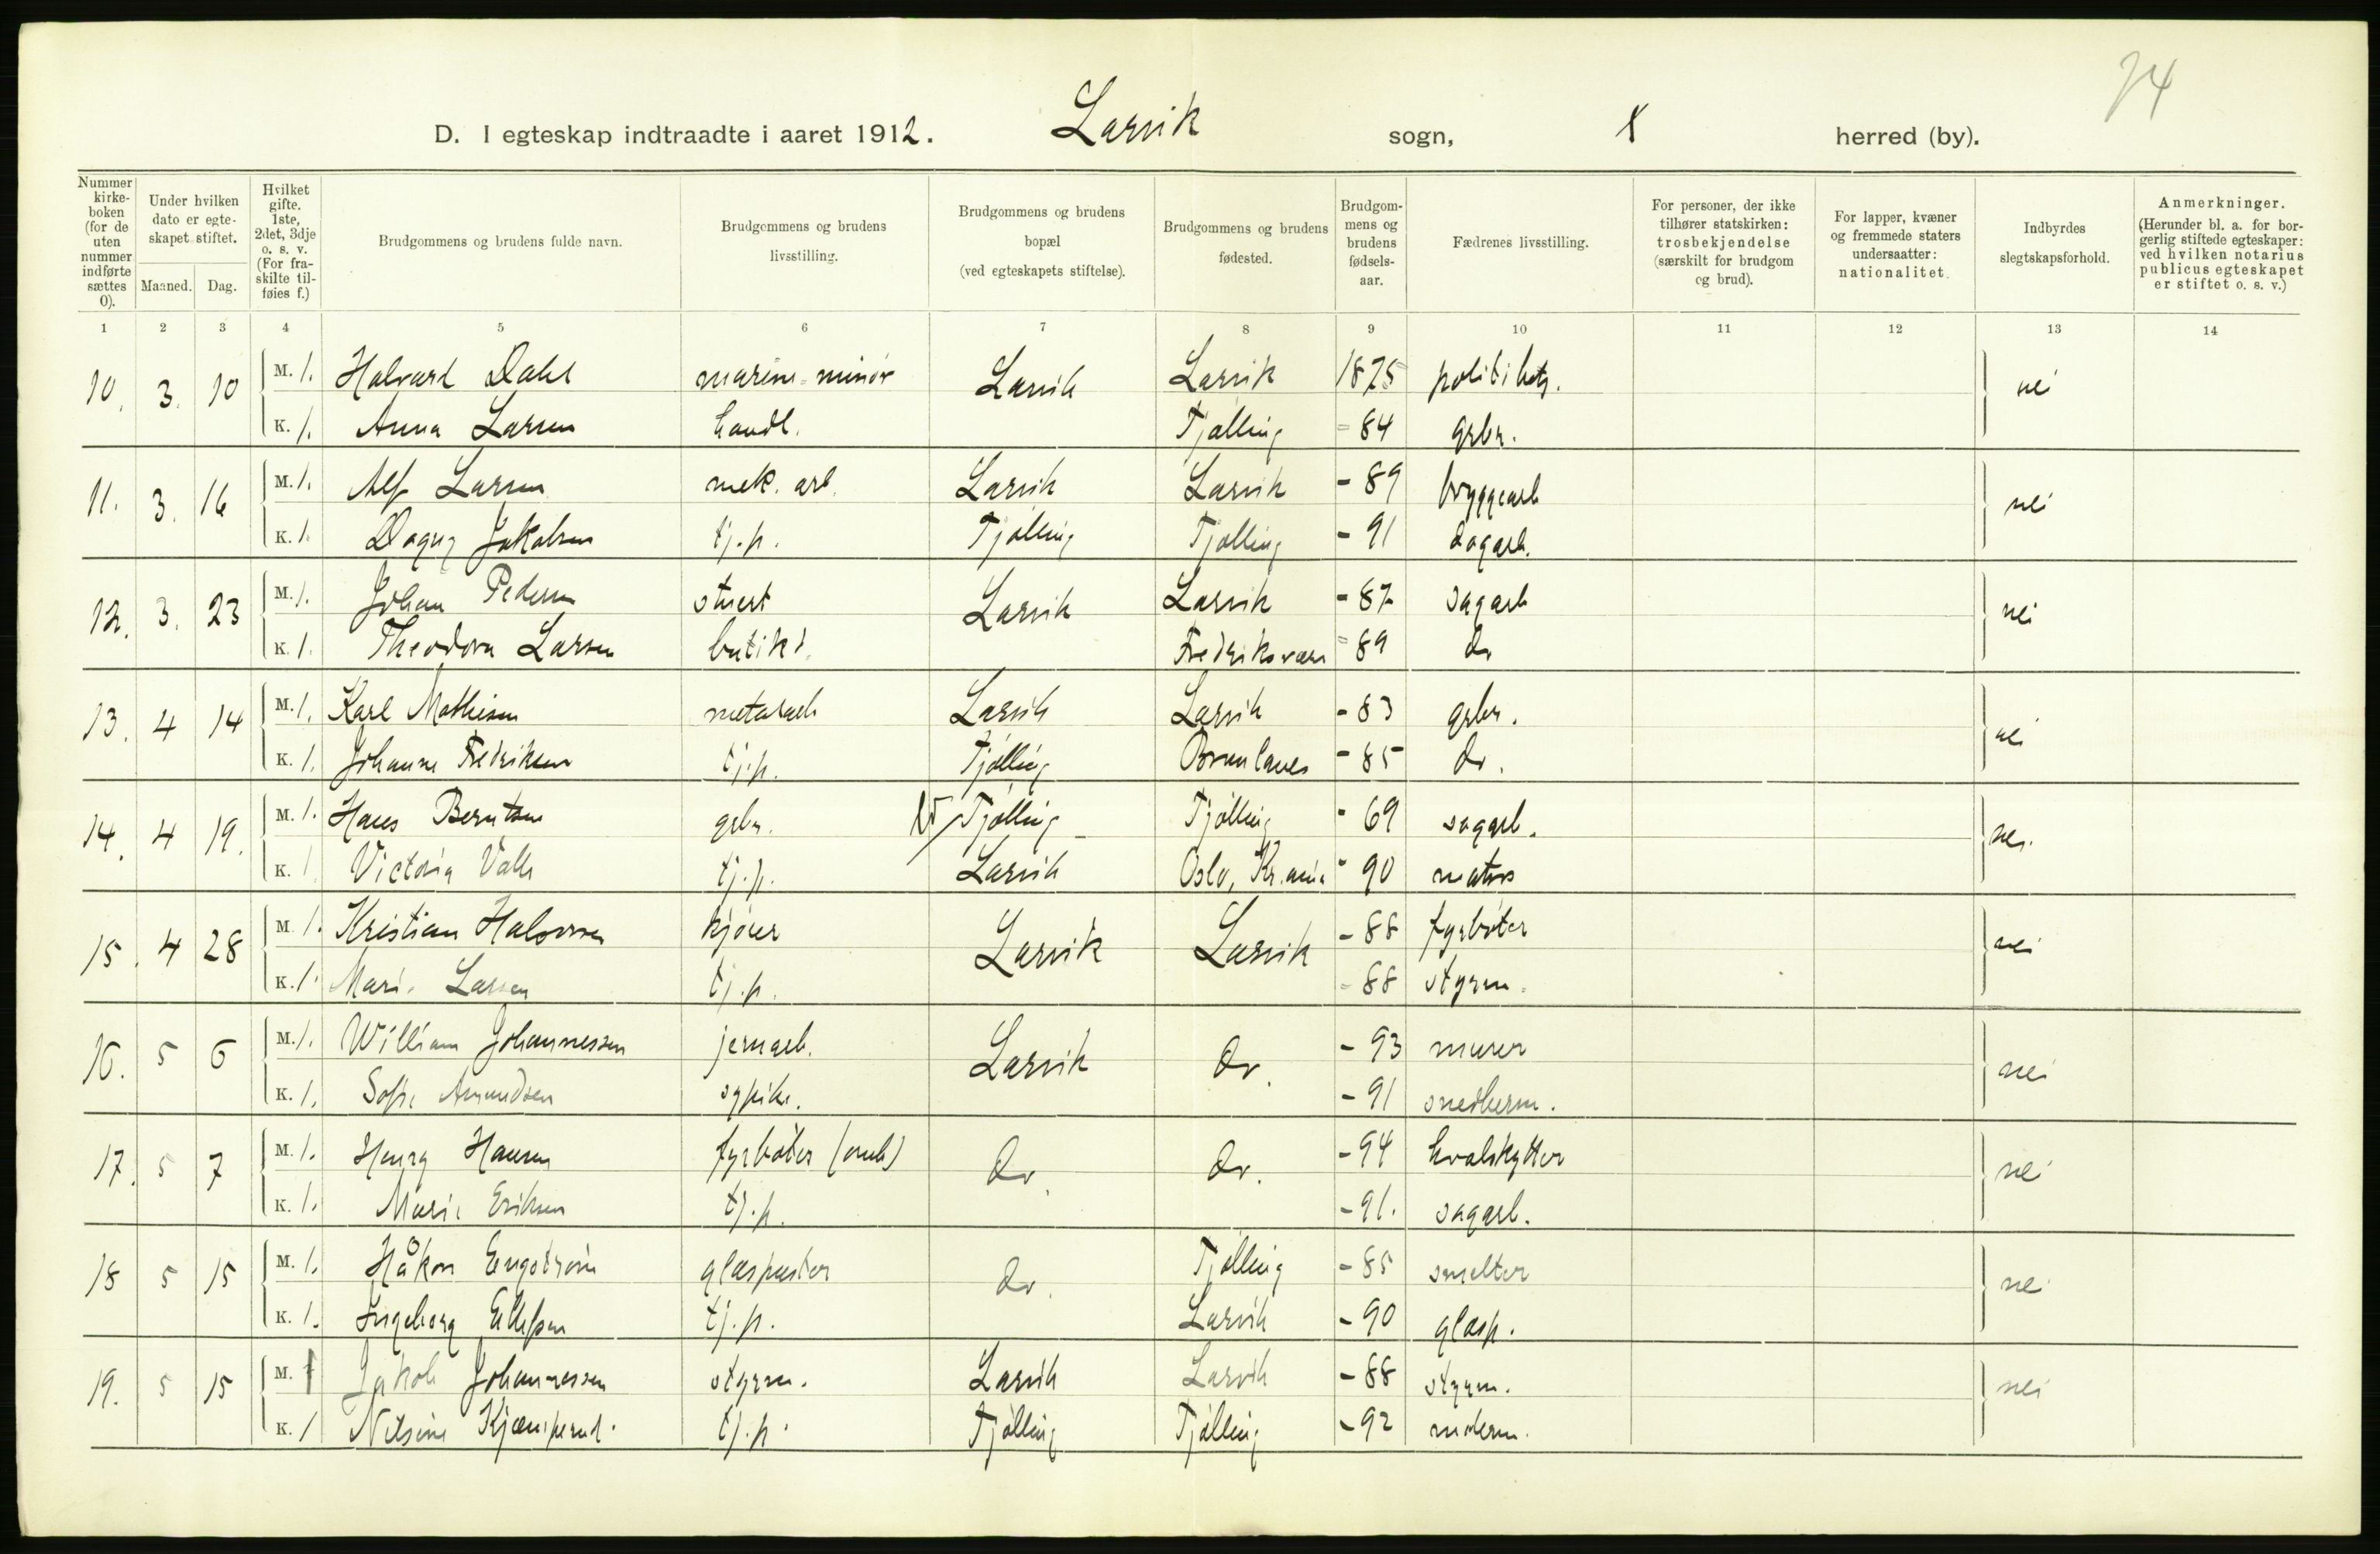 74
D. I egteskap indtraadte i aaret 1912. Larvik sogn, herred (by).
Nummer kirke-boken (for de uten nummer indførte sættes 0).
Under hvilken dato er egte-skapet stiftet.
Maaned. Dag.
Hvilket gifte. 1ste, 2det, 3dje o. s. v. (For fra-skilte til-føies f.)
Brudgommens og brudens fulde navn.
Brudgommens og brudens livsstilling.
Brudgommens og brudens bopæl (ved egteskapets stiftelse).
Brudgommens og brudens fødested.
Brudgom-mens og brudens fødsels-aar.
Fædrenes livsstilling.
For personer, der ikke tilhører statskirken: trosbekjendelse (særskilt for brudgom og brud).
For lapper, kvæner og fremmede staters undersaatter: nationalitet.
Indbyrdes slegtskapsforhold.
Anmerkninger. (Herunder bl. a. for bor-gerlig stiftede egteskaper: ved hvilken notarius publicus egteskapet er stiftet o. s. v.)
1 2 3 4 5 6 7 8 9 10 11 12 13 14
10. 3. 10 M. 1. Halvard Dahl marine-minør Larvik Larvik 1875 politibetj. nei
K. 1. Anna Larsen handl. Tjølling - 84 grbr.
11. 3. 16 M. 1. Alf Larsen mek. arb. Larvik Larvik - 89 bryggearb nei
K. 1. Dagny Jakobsen tj.p. Tjølling Tjølling - 91 dagarb.
12. 3. 23 M. 1. Johan Pedersen stuert Larvik Larvik - 87 sagarb nei
K. 1. Theodora Larsen butikd. Fredriksværn - 89 do
13. 4 14 M. 1. Karl Mathisen metalarb Larvik Larvik - 83 grbr. nei
K. 1. Johanne Fredriksen tj.p. Tjølling Brunlanes - 85 do.
14. 4 19. M. 1. Hans Berntsen grbr. Tjølling Tjølling - 69 sagarb. nei
K. 1 Victoria Valle tj.p. Larvik Oslo, Kr.ania - 90 matros
15. 4 28 M. 1. Kristian Halvorsen kjører Larvik Larvik - 88 fyrbøter nei
K. 1. Marie Larsen tj.p. - 88 styrm.
16. 5 6 M. 1. William Johannessen jernarb. Larvik do. - 93 murer nei
K. 1. Sofie Amundsen sypike. - 91 snedkerm.
17. 5 7 M. 1. Henry Hansen fyrbøter do. do. - 94 hvalskytter nei
K. 1. Marie Eriksen tj.p. - 91. sagarb.
18 5 15 M. 1. Håkon Engstrøm glaspuster do. Tjølling - 85 smelter nei
K. 1. Ingeborg Ellefsen tj.p. Larvik - 90 glasp.
19. 5 15 M. 1 Jakob Johannessen styrm. Larvik Larvik - 88 styrm. nei
K. 1 Nilsine Kjæmperud. tj.p. Tjølling Tjølling - 92